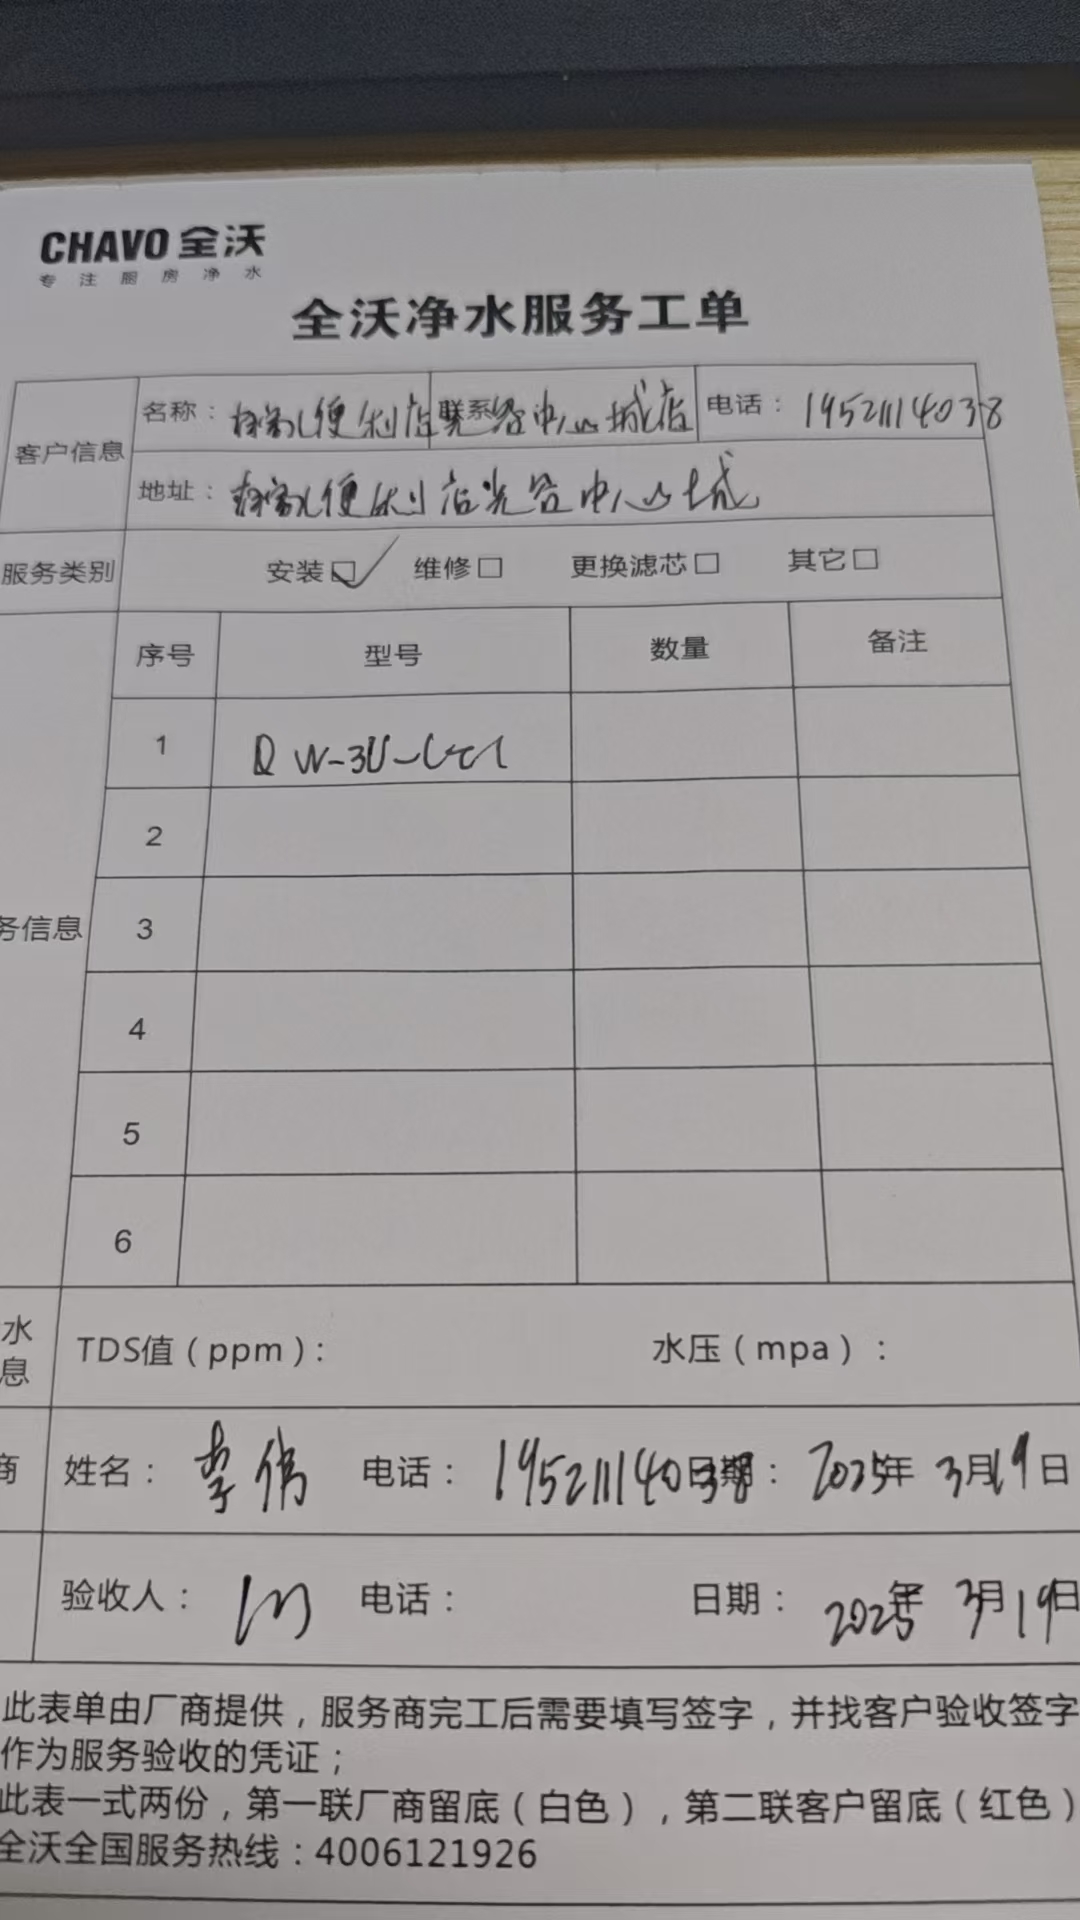 CHAVO 全沃
专注厨房净水
全沃净水服务工单
客户信息 名称： 便利店 联系 中心城店 电话：19521114038
地址： 便利店光谷中心城
服务类别 安装☑ 维修□ 更换滤芯□ 其它□
序号 型号 数量 备注
1 QW-3U-
2
务信息 3
4
5
6
水息 TDS值（ppm）： 水压（mpa）：
商 姓名：李伟 电话：19521114038 日期：2025年3月19日
验收人： 电话： 日期：2025年3月19日
此表单由厂商提供，服务商完工后需要填写签字，并找客户验收签字
作为服务验收的凭证；
此表一式两份，第一联厂商留底（白色），第二联客户留底（红色）
全沃全国服务热线：4006121926